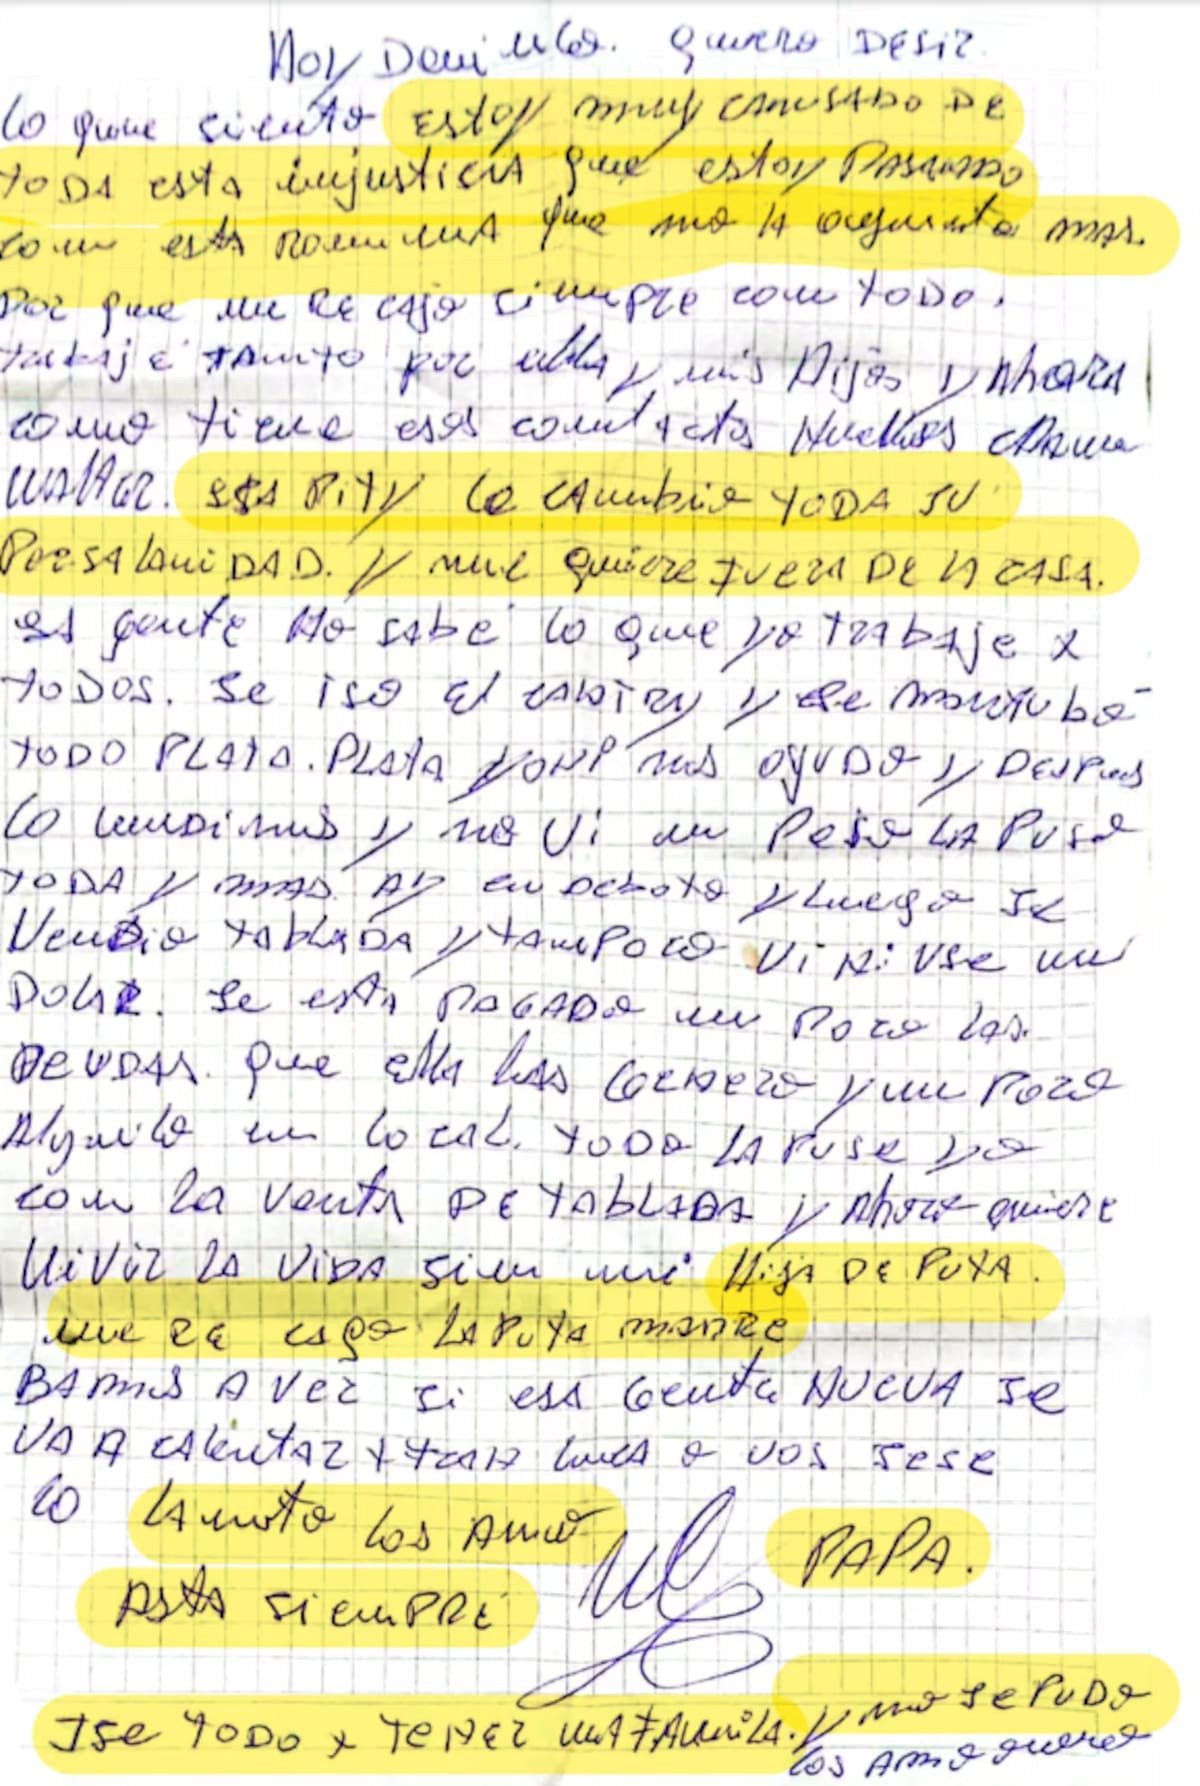 Hoy Domingo. quiero DESiR.
lo que siento Estoy muy CANSADO DE
toDA esta injusticia que estoy PASANDO
con esta ROMINA que no la aguanto mas.
Por que me RE cajo siempre con toDo.
trabaje tanto por ella y mis Hijos y Ahora
como tiene esos contactos Nuebos
ESA PITY le cambio toDA SU
PersalaniDAD. y me quiere FUERA DE LA CASA.
es gente No sabe lo que yo trabaje x
toDos. Se iso el y se mantubo
toDO PLATA. PLATA nos ayuDo y DESPUES
lo VenDimos y no Vi un Peso LA PUSE
toDA y mas. en y luego SE
VenDio tablADA y tamPoco Vi Ni USe un
DoLaR. Se esta PAGADo un Poco las.
DEUDAS. que ella las Genero y un Poco
Alquilo un local. toDo LA PUSE yo
con la venta DE TABLADA y Ahora quiere
ViVir la ViDA sin mi Hija DE PUTA.
me RE cago LA PUTA MADRE
BAMOS A VER si esa Gente NUEVA SE
VA A calentar x o vos
lo lamoto los Amo
ASTA SiemPRE PAPA.
ISE toDo x TENER unA FAMiliA. y no SE PUDO
los Amo